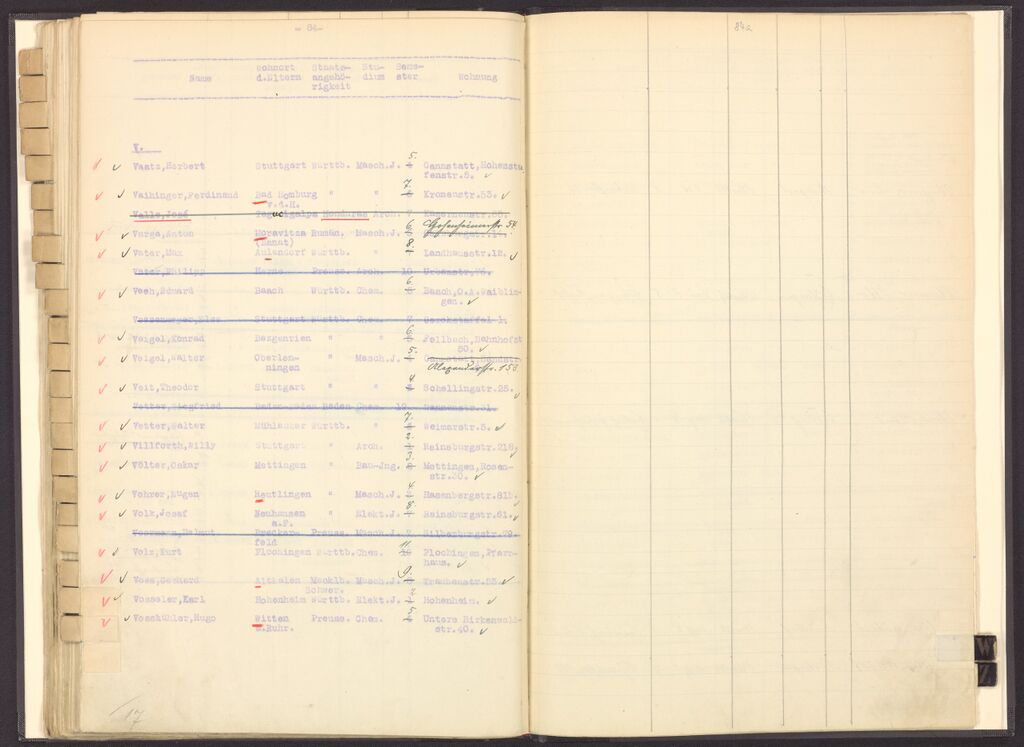 84a
Name Wohnort d.Eltern Staats-angehö-rigkeit Stu-dium Seme-ster Wohnung
V.
Vaatz,Herbert Stuttgart Württb. Masch.J. 5. Cannstatt,Hohenstau
fenstr.8.
Vaihinger,Ferdinand Bad Homburg " " 7. Kronenstr.53.
v.d.H.
Valle,José Tegucigalpa Honduras Arch. 7 Kasernenstr.
Varga,Anton Moravitza Rumän. Masch.J. 6. Hohenheimerstr. 54
(Banat)
Vater,Max Aulendorf Württb. " 8. Landhausstr.12.
Vater,Philipp Herne Preuss. Arch. 10 Urbanstr.
Veeh,Eduard Baach Württb. Chem. 6. Baach,O.A.Waiblin-
gen.
Stuttgart Württb. Chem. 7
Veigel,Konrad " " 6. Fellbach,Bahnhofst
50.
Veigel,Walter Oberlen- " Masch.J. 5.
ningen Alexanderstr. 153
Veit,Theodor Stuttgart " " 4. Schellingstr.
Vetter,Siegfried Baden-Baden Baden Chem. 10
Vetter,Walter Mühlacker Württb. " 7. Weimarstr.
Villforth,Willy Stuttgart " Arch. 2. Reinsburgstr.218.
Völter,Oskar Mettingen " Bau-Jng. 3. Mettingen,Rosen-
str.30.
Vohrer,Eugen Reutlingen " Masch.J. 4. Hasenbergstr.
Volk,Josef Neuhausen " Elekt.J. 8. Reinsburgstr.61.
a.F.
Preuss. Masch.J. Silberburgstr.
feld
Volz,Kurt Plochingen Württb. Chem. 11. Plochingen,Pfarr-
haus.
Voss,Gerhard Altkalen Mecklb. Masch.J. 9. Traubenstr.
Schwer.
Vosseler,Karl Hohenheim Württb. Elekt.J. 2. Hohenheim.
Vosskühler,Hugo Witten Preuss. Chem. 5. Untere Birkenwald-
a.Ruhr. str.40.
17
W
Z